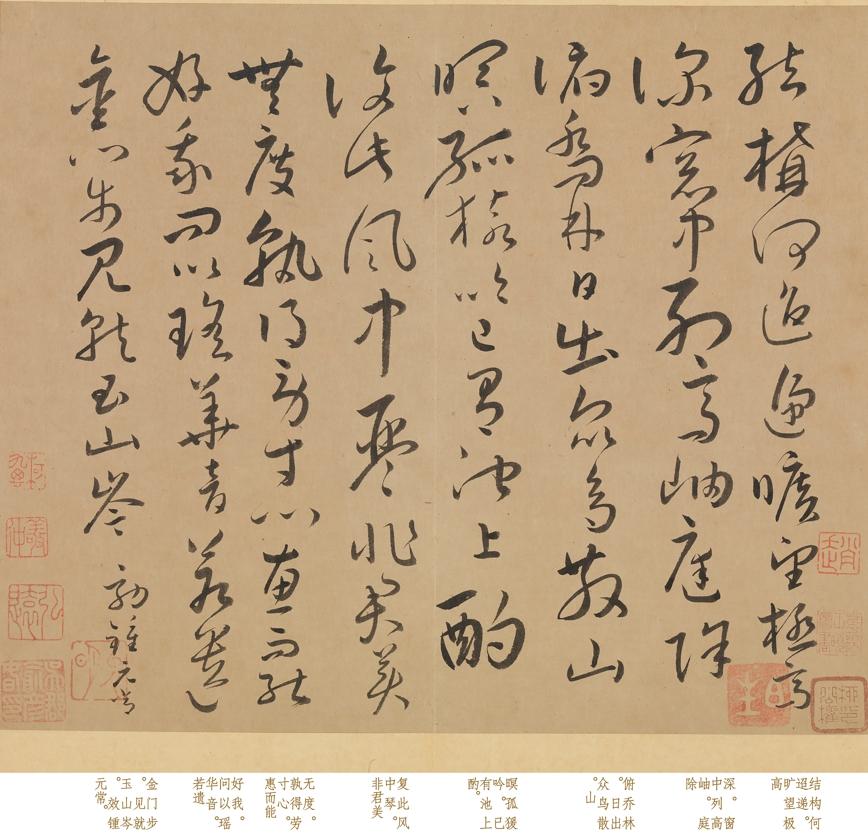 结構何迢遰曠望極高
深窓中列高岫庭除
俯喬林日出衆鳥散山
暝孤猨吟已有池上酌
復此風中琴非君美
無度孰得勞寸心惠而能
好我問以瑤華音若遺
金門步見就玉山岑
效鍾元常
结构何
迢递。
旷望极
高
深。窗
中列高
岫。庭
除
俯乔林
。日出
众鸟散
山
暝。孤猿
吟。已
有池上
酌。
复此风
中琴。
非君美
无度。
孰得劳
寸心。
惠而能
好我。
问以瑶
华音。
若遗
金门步
。见就
玉山岑
。效锺
元常